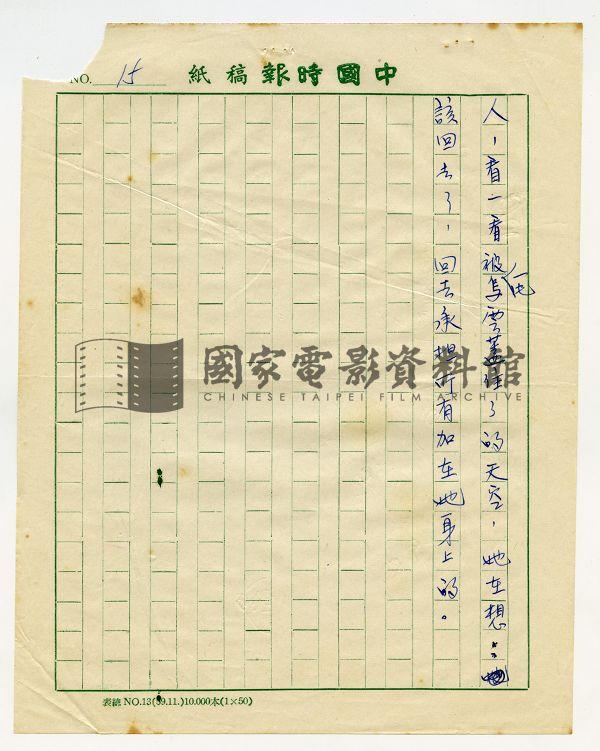 NO. 15
中國時報稿紙
人，看一看被烏雲蓋住了的天空，她在想：
該回去了，回去承擔所有加在她身上的。
國家電影資料館
CHINESE TAIPEI FILM ARCHIVE
表總 NO.13(59.11.)10.000本(1×50)